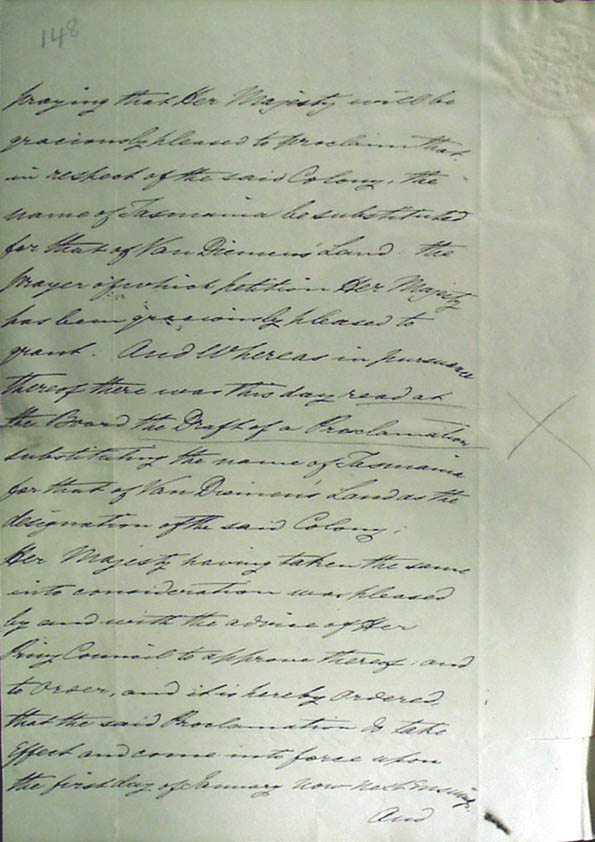 148
praying that Her Majesty will be
graciously pleased to proclaim that
in respect of the said Colony, the
name of Tasmania be substituted
for that of Van Diemen's Land. the
prayer of which petition Her Majesty
has been graciously pleased to
grant. And Whereas in pursuance
thereof there was this day read at
the Board the Draft of a Proclamation
substituting the name of Tasmania
for that of Van Diemen's Land as the
designation of the said Colony;
Her Majesty having taken the same
into consideration was pleased
by and with the advice of Her
Privy Council to approve thereof, and
to Order, and it is hereby Ordered,
that the said Proclamation do take
Effect and come into force upon
the first day of January now next ensuing.
And